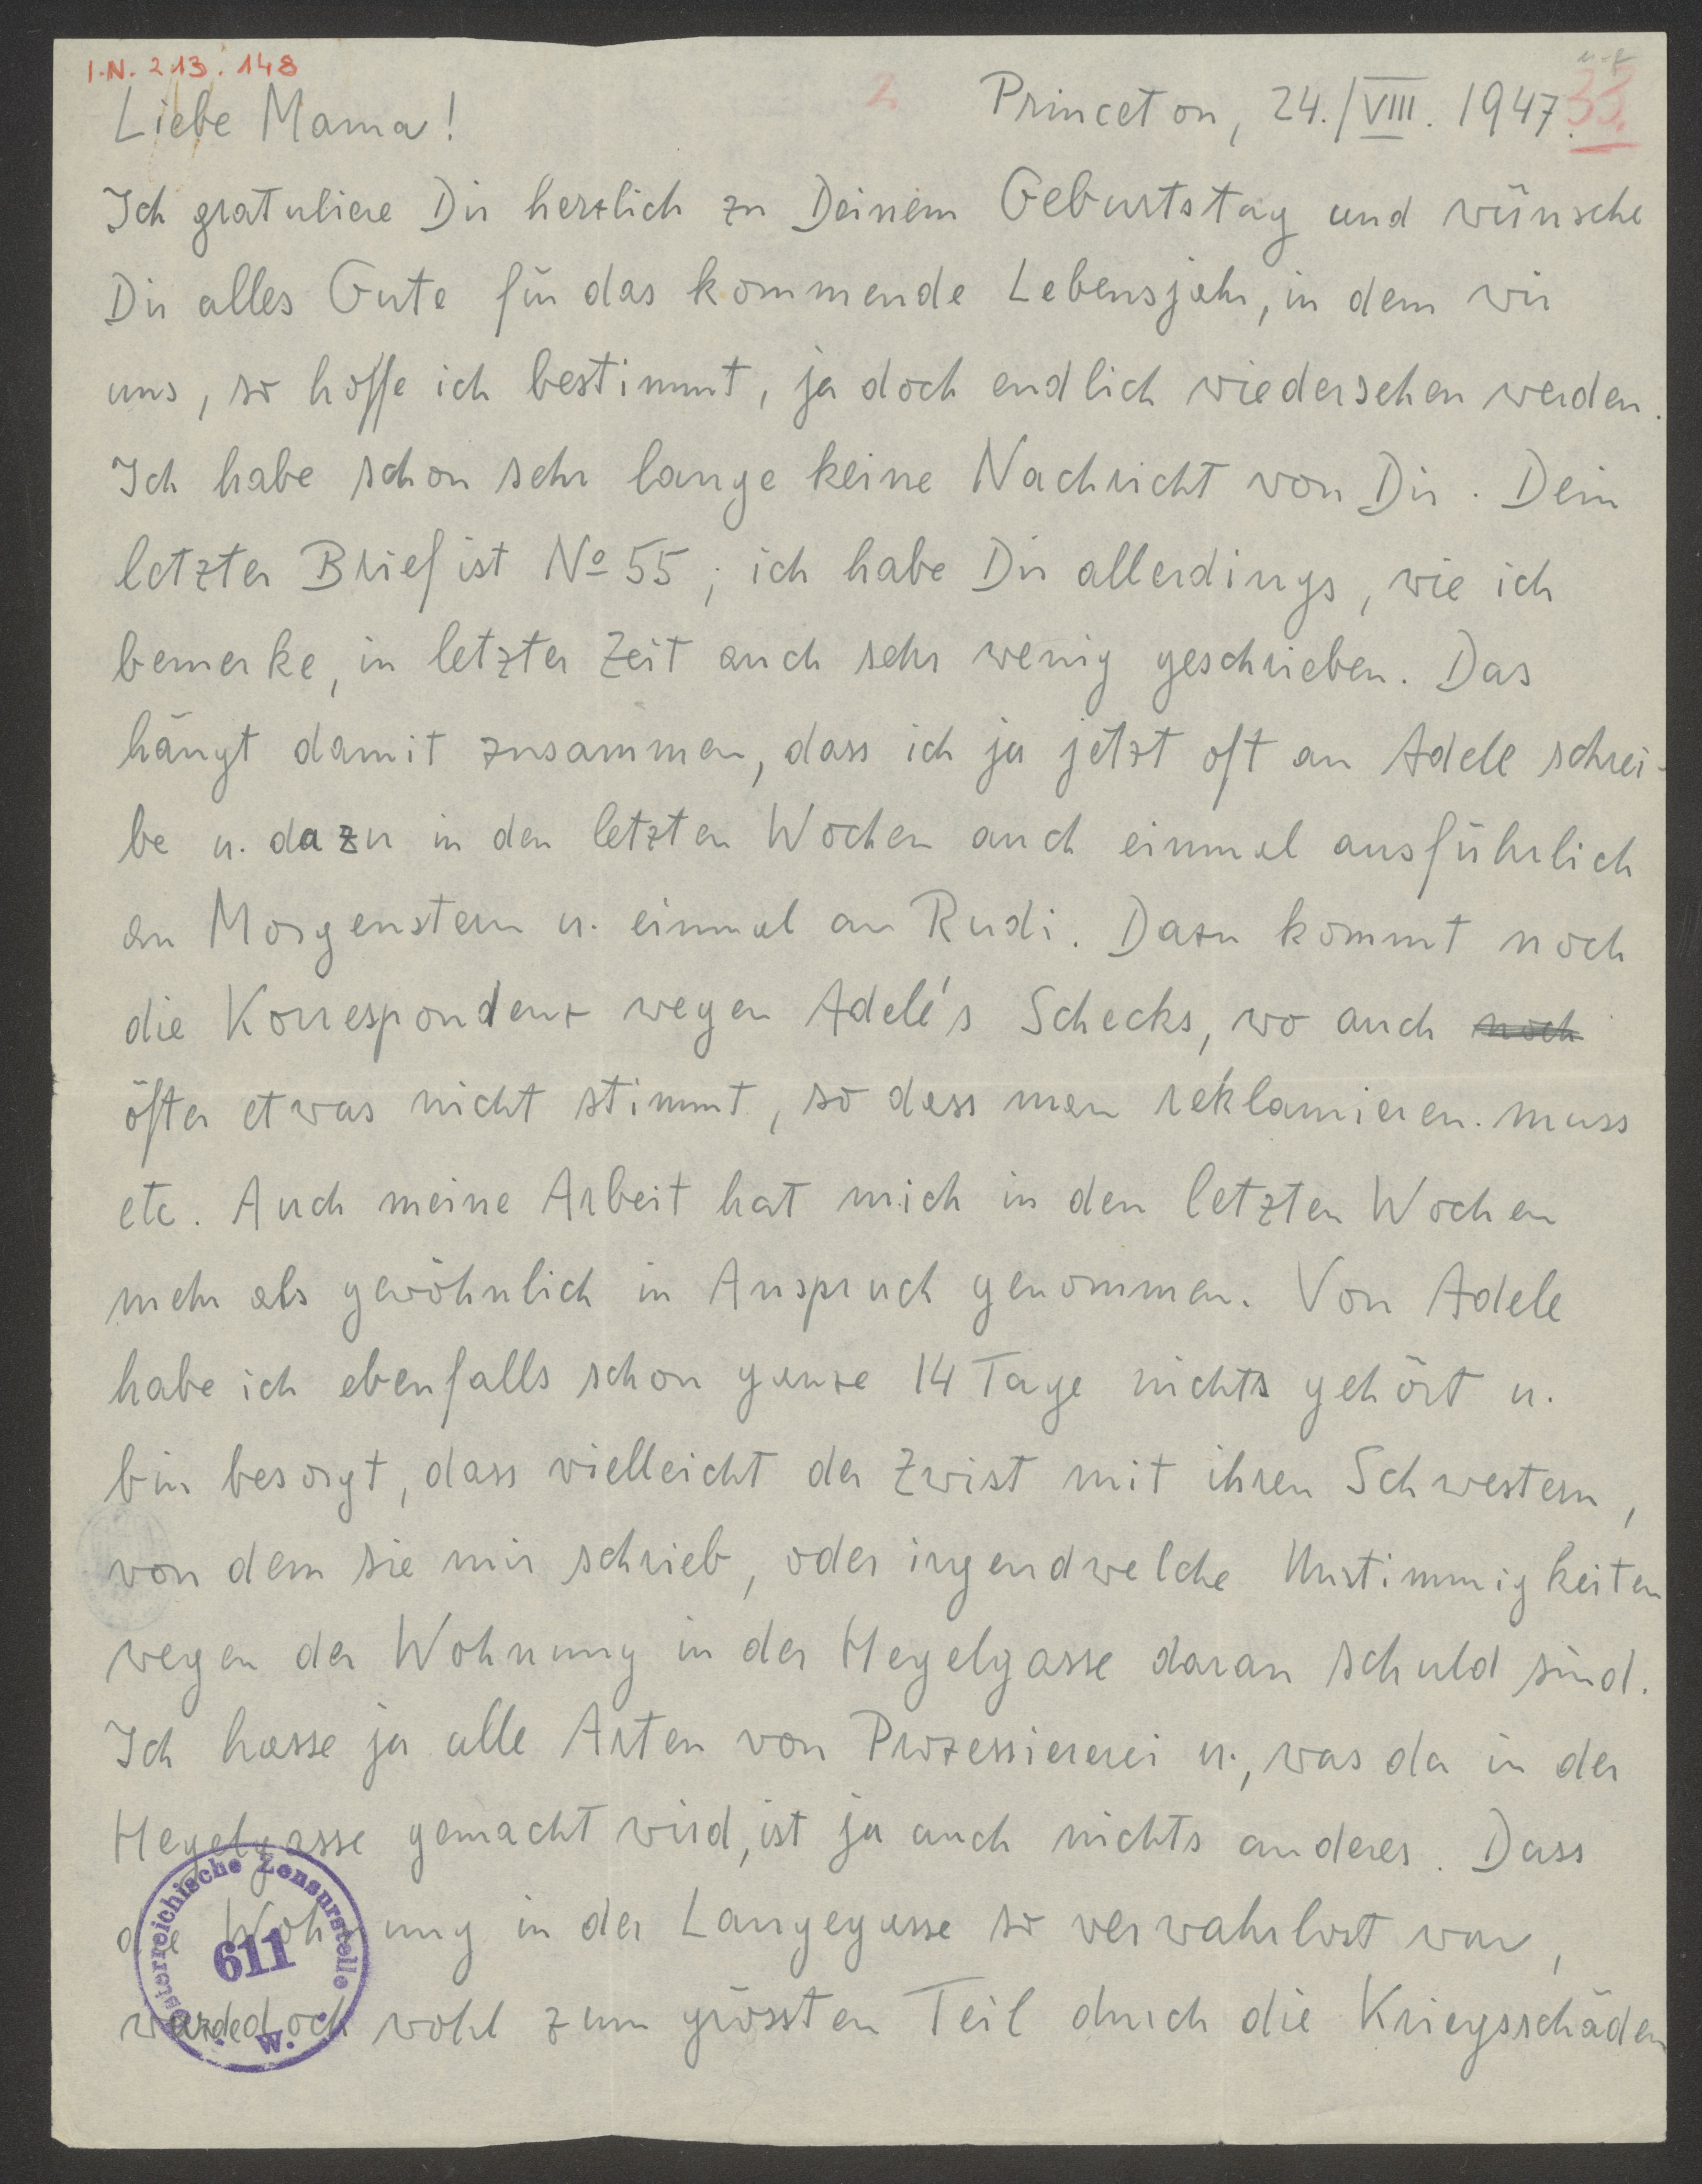 I.N. 213.148
Liebe Mama! Princeton, 24./VIII. 1947.
33.
Ich gratuliere Dir herzlich zu Deinem Geburtstag und wünsche
Dir alles Gute für das kommende Lebensjahr, in dem wir
uns, so hoffe ich bestimmt, ja doch endlich wiedersehen werden.
Ich habe schon sehr lange keine Nachricht von Dir. Dein
letzter Brief ist No 55; ich habe Dir allerdings, wie ich
bemerke, in letzter Zeit auch sehr wenig geschrieben. Das
hängt damit zusammen, dass ich ja jetzt oft an Adele schrei-
be u. dazu in den letzten Wochen auch einmal ausführlich
an Morgenstern u. einmal an Rudi. Dazu kommt noch
die Korrespondenz wegen Adele's Schecks, wo auch noch
öfter etwas nicht stimmt, so dass man reklamieren muss
etc. Auch meine Arbeit hat mich in den letzten Wochen
mehr als gewöhnlich in Anspruch genommen. Von Adele
habe ich ebenfalls schon ganze 14 Tage nichts gehört u.
bin besorgt, dass vielleicht der Zwist mit ihren Schwestern,
von dem sie mir schrieb, oder irgendwelche Unstimmigkeiten
wegen der Wohnung in der Hegelgasse daran schuld sind.
Ich hasse ja alle Arten von Prozessiererei u., was da in der
Hegelgasse gemacht wird, ist ja auch nichts anderes. Dass
die Wohnung in der Langegasse so verwahrlost war,
wurde doch wohl zum grössten Teil durch die Kriegsschäden
Österreichische Zensurstelle
611
W.